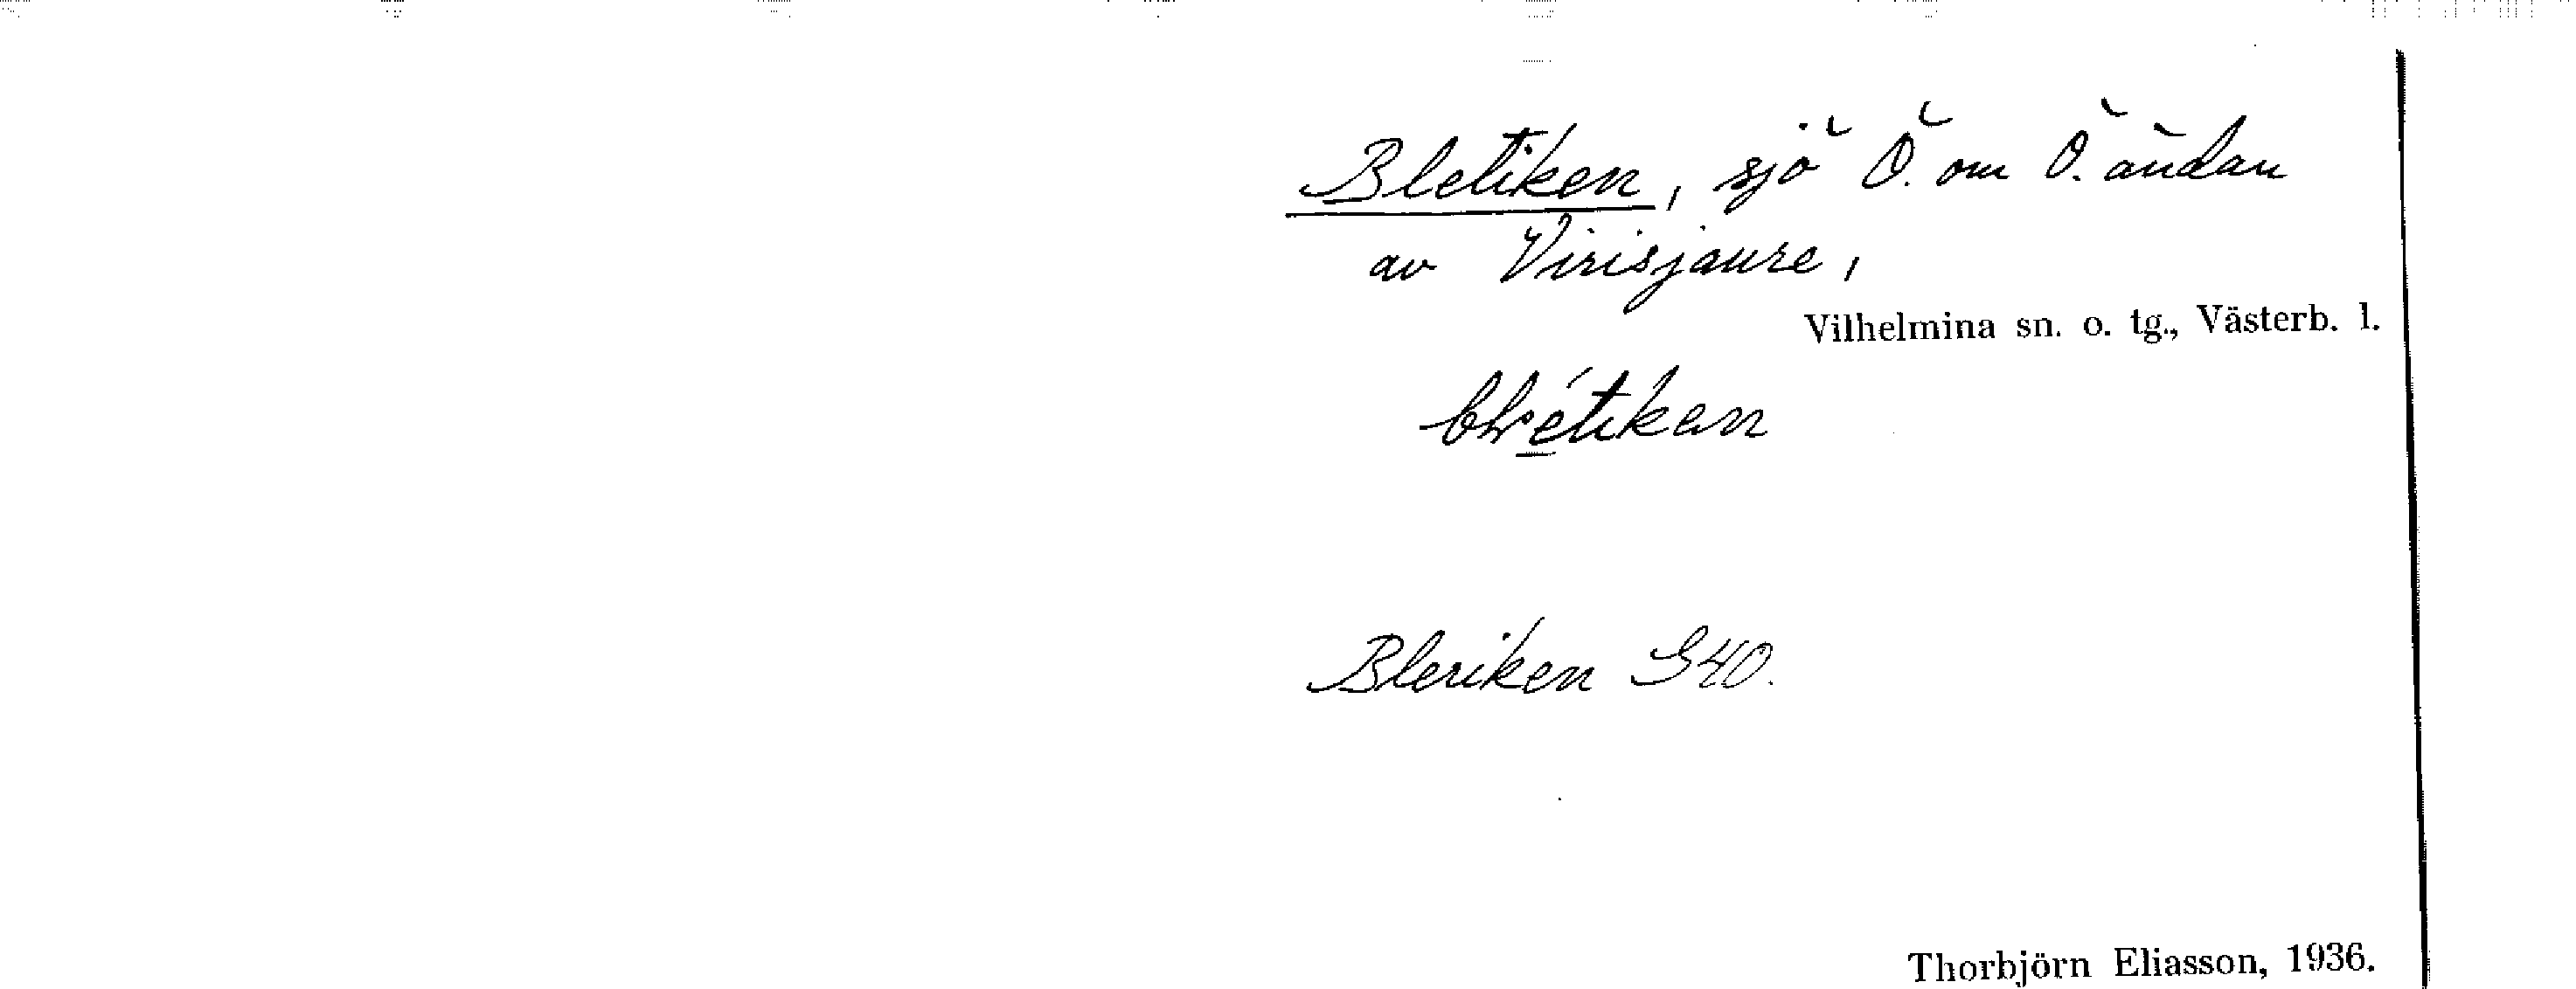 Bletiken, sjö Ö. om Ö. ändan
av Virisjaure,
Vilhelmina sn. o. tg., Västerb. l.
Bleriken S40.
Thorbjörn Eliasson, 1936.